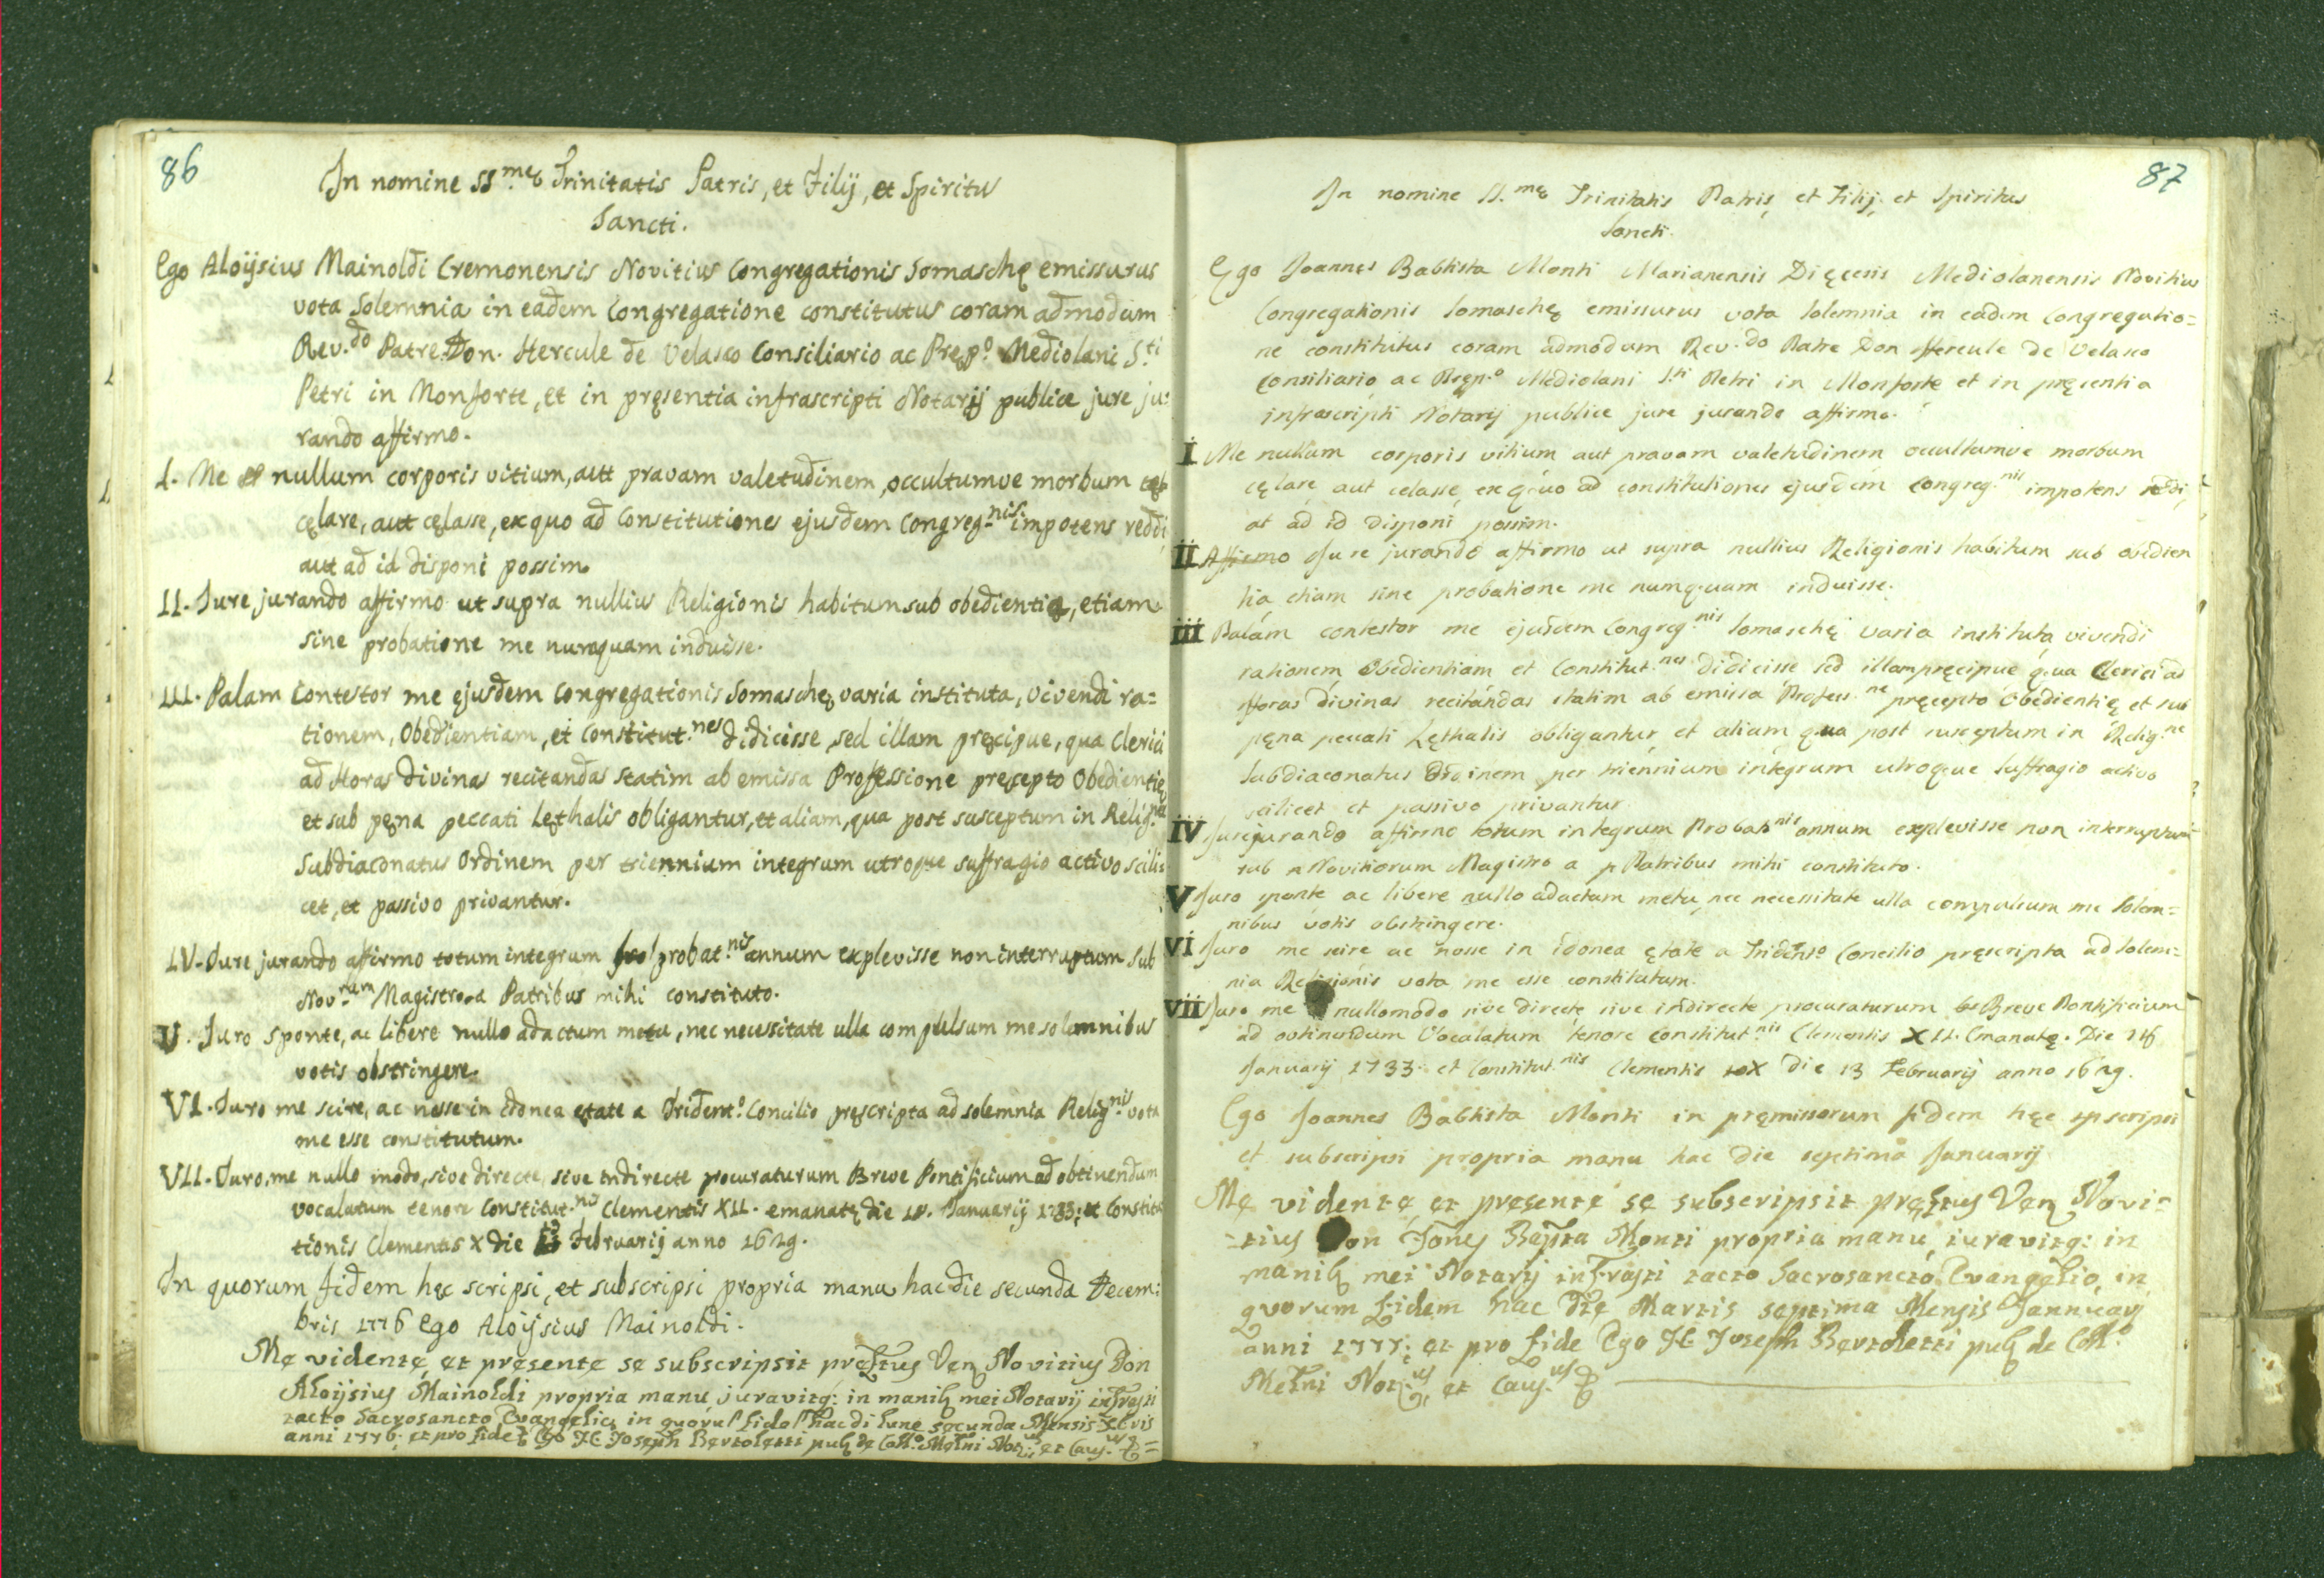 86
In nomine SS.mę Trinitatis Patris, et Filij, et Spiritus
Sancti.
Ego Aloÿsius Mainoldi Cremonensis Novitius Congregationis Somaschę emissurus
vota Solemnia in eadem Congregatione constitutus coram admodum
Rev.do Patre Don. Hercule de Velasco Consiliario ac Pręp.o Mediolani S.ti
Petri in Monforte, et in pręsentia infrascripti Notarij publice jure ju=
rando affirmo.
I. Me nullum corporis vitium, aut pravam valetudinem, occultumve morbum
cęlare, aut cęlasse, ex quo ad Constitutiones ejusdem Congreg.nis impotens reddi
aut ad id disponi possim.
II. Jure jurando affirmo ut supra nullius Religionis habitum sub obedientia, etiam
sine probatione me numquam induisse.
III. Palam Contestor me ejusdem Congregationis Somaschę varia instituta, vivendi ra=
tionem, Obedientiam, et Constitut.nes didicisse, sed illam pręcipue, qua Clerici
ad Horas Divinas recitandas statim ab emissa Professione pręcepto Obedientię
et sub pęna peccati Lęthalis obligantur, et aliam, qua post susceptum in Relig.ne
Subdiaconatus Ordinem per triennium integrum utroque suffragio activo scili
cet, et passivo privantur.
IV. Jure jurando affirmo totum integrum probat.nis annum explevisse non interruptum sub
Nov.rum Magistro a Patribus mihi constituto.
V. Juro sponte, ac libere nullo adactum metu, nec necessitate ulla compulsum me solemnibus
votis obstringere.
VI. Juro me scire, ac nosse in idonea ętate a Trident.o Concilio pręscripta ad solemnia Relig.nis vota
me esse constitutum.
VII. Juro me nullo modo, sive directe, sive indirecte procuraturum Breve Pontificium ad obtinendum
vocalatum tenore Constitut.nis Clementis XII. emanatę die Januarij 1733; et Constitu
tionis Clementis X die 13 Februarij anno 1629.
In quorum fidem hęc scripsi, et subscripsi propria manu hac die secunda Decem:
bris 1776 Ego Aloÿsius Mainoldi.
Me vidente, et presente se subscripsit pręftus Ven Novitius Don
Aloijsius Mainoldi propria manu juravitq: in manib mei Notarij infrasti
tacto Sacrosancto Evangelio, in hac di lune secunda Mensis
anni 1776; et pro fide Ego JC Joseph Bertoletti pub de Coll.o Metni Not.us et Caus.us
87
In nomine SS.mę Trinitatis Patris, et Filij, et Spiritus
Sancti.
Ego Joannes Babtista Monti Marianensis Dięcesis Mediolanensis Novitius
Congregationis Somaschę emissurus vota solemnia in eadem Congregatio=
ne constitutus coram admodum Rev.do Patre Don Hercule de Velasco
Consiliario ac Pręp.o Mediolani S.ti Petri in Monforte et in pręsentia
infrascripti Notarij publice jure jurando affirmo.
I Me nullum corporis vitium aut pravam valetudinem occultumve morbum
cęlare aut celasse, ex quo ad constitutiones ejusdem Congreg.nis impotens reddi,
at ad id disponi possim.
II Affirmo Jure jurando affirmo ut supra nullius Religionis habitum sub obedien
tia etiam sine probatione me numquam induisse.
III Palám contestor me ejusdem Congreg.nis Somaschę varia instituta, vivendi
rationem Obedientiam et Constitut.nes didicisse sed illam pręcipue qua Clerici ad
Horas divinas recitándas statim ab emissa Profess.ne pręcepto Obedientię et sub
pęna peccati Lęthalis obligantur, et aliam qua post susceptum in Relig.ne
Subdiaconatus Ordinem per triennium integrum utroque Suffragio activo
scilicet et passivo privantur
IV Jurejurando affirmo totum integrum Probat.nis annum explevisse non interruptum
sub Novitiorum Magistro a Patribus mihi constituto.
V Juro sponte ac libere nullo adactum metu, nec necessitate ulla compulsum me solem=
nibus votis obstringere.
VI Juro me scire ac nosse in idonea ętate a Trident.o Concilio pręscripta ad solem=
nia Religionis vota me esse constitutum.
VII Juro me nullomodo sive directe sive indirecte procuraturum Breve Pontificium
ad obtinendum Vocalatum tenore constitut.nis Clementis XII. Emanatę. Die 16
Januarij 1733. et Constitut.nis Clementis X die 13 Februarij anno 1629.
Ego Joannes Babtista Monti in pręmissorum fidem hęc scripsi
et subscripsi propria manu hac die septima Januarij
Me vidente, et presente se subscripsit pręftus Ven Novi=
=tius Don Joñes Bapta Monti propria manu, iuravitq: in
manib mei Notarij infrasti tacto Sacrosancto Evangelio, in
quorum fidem hac die Martis septima Mensis Jannuarij
anni 1777; et pro fide Ego JC Joseph Bertoletti pub de Coll.o
Metni Not.us, et Caus.us